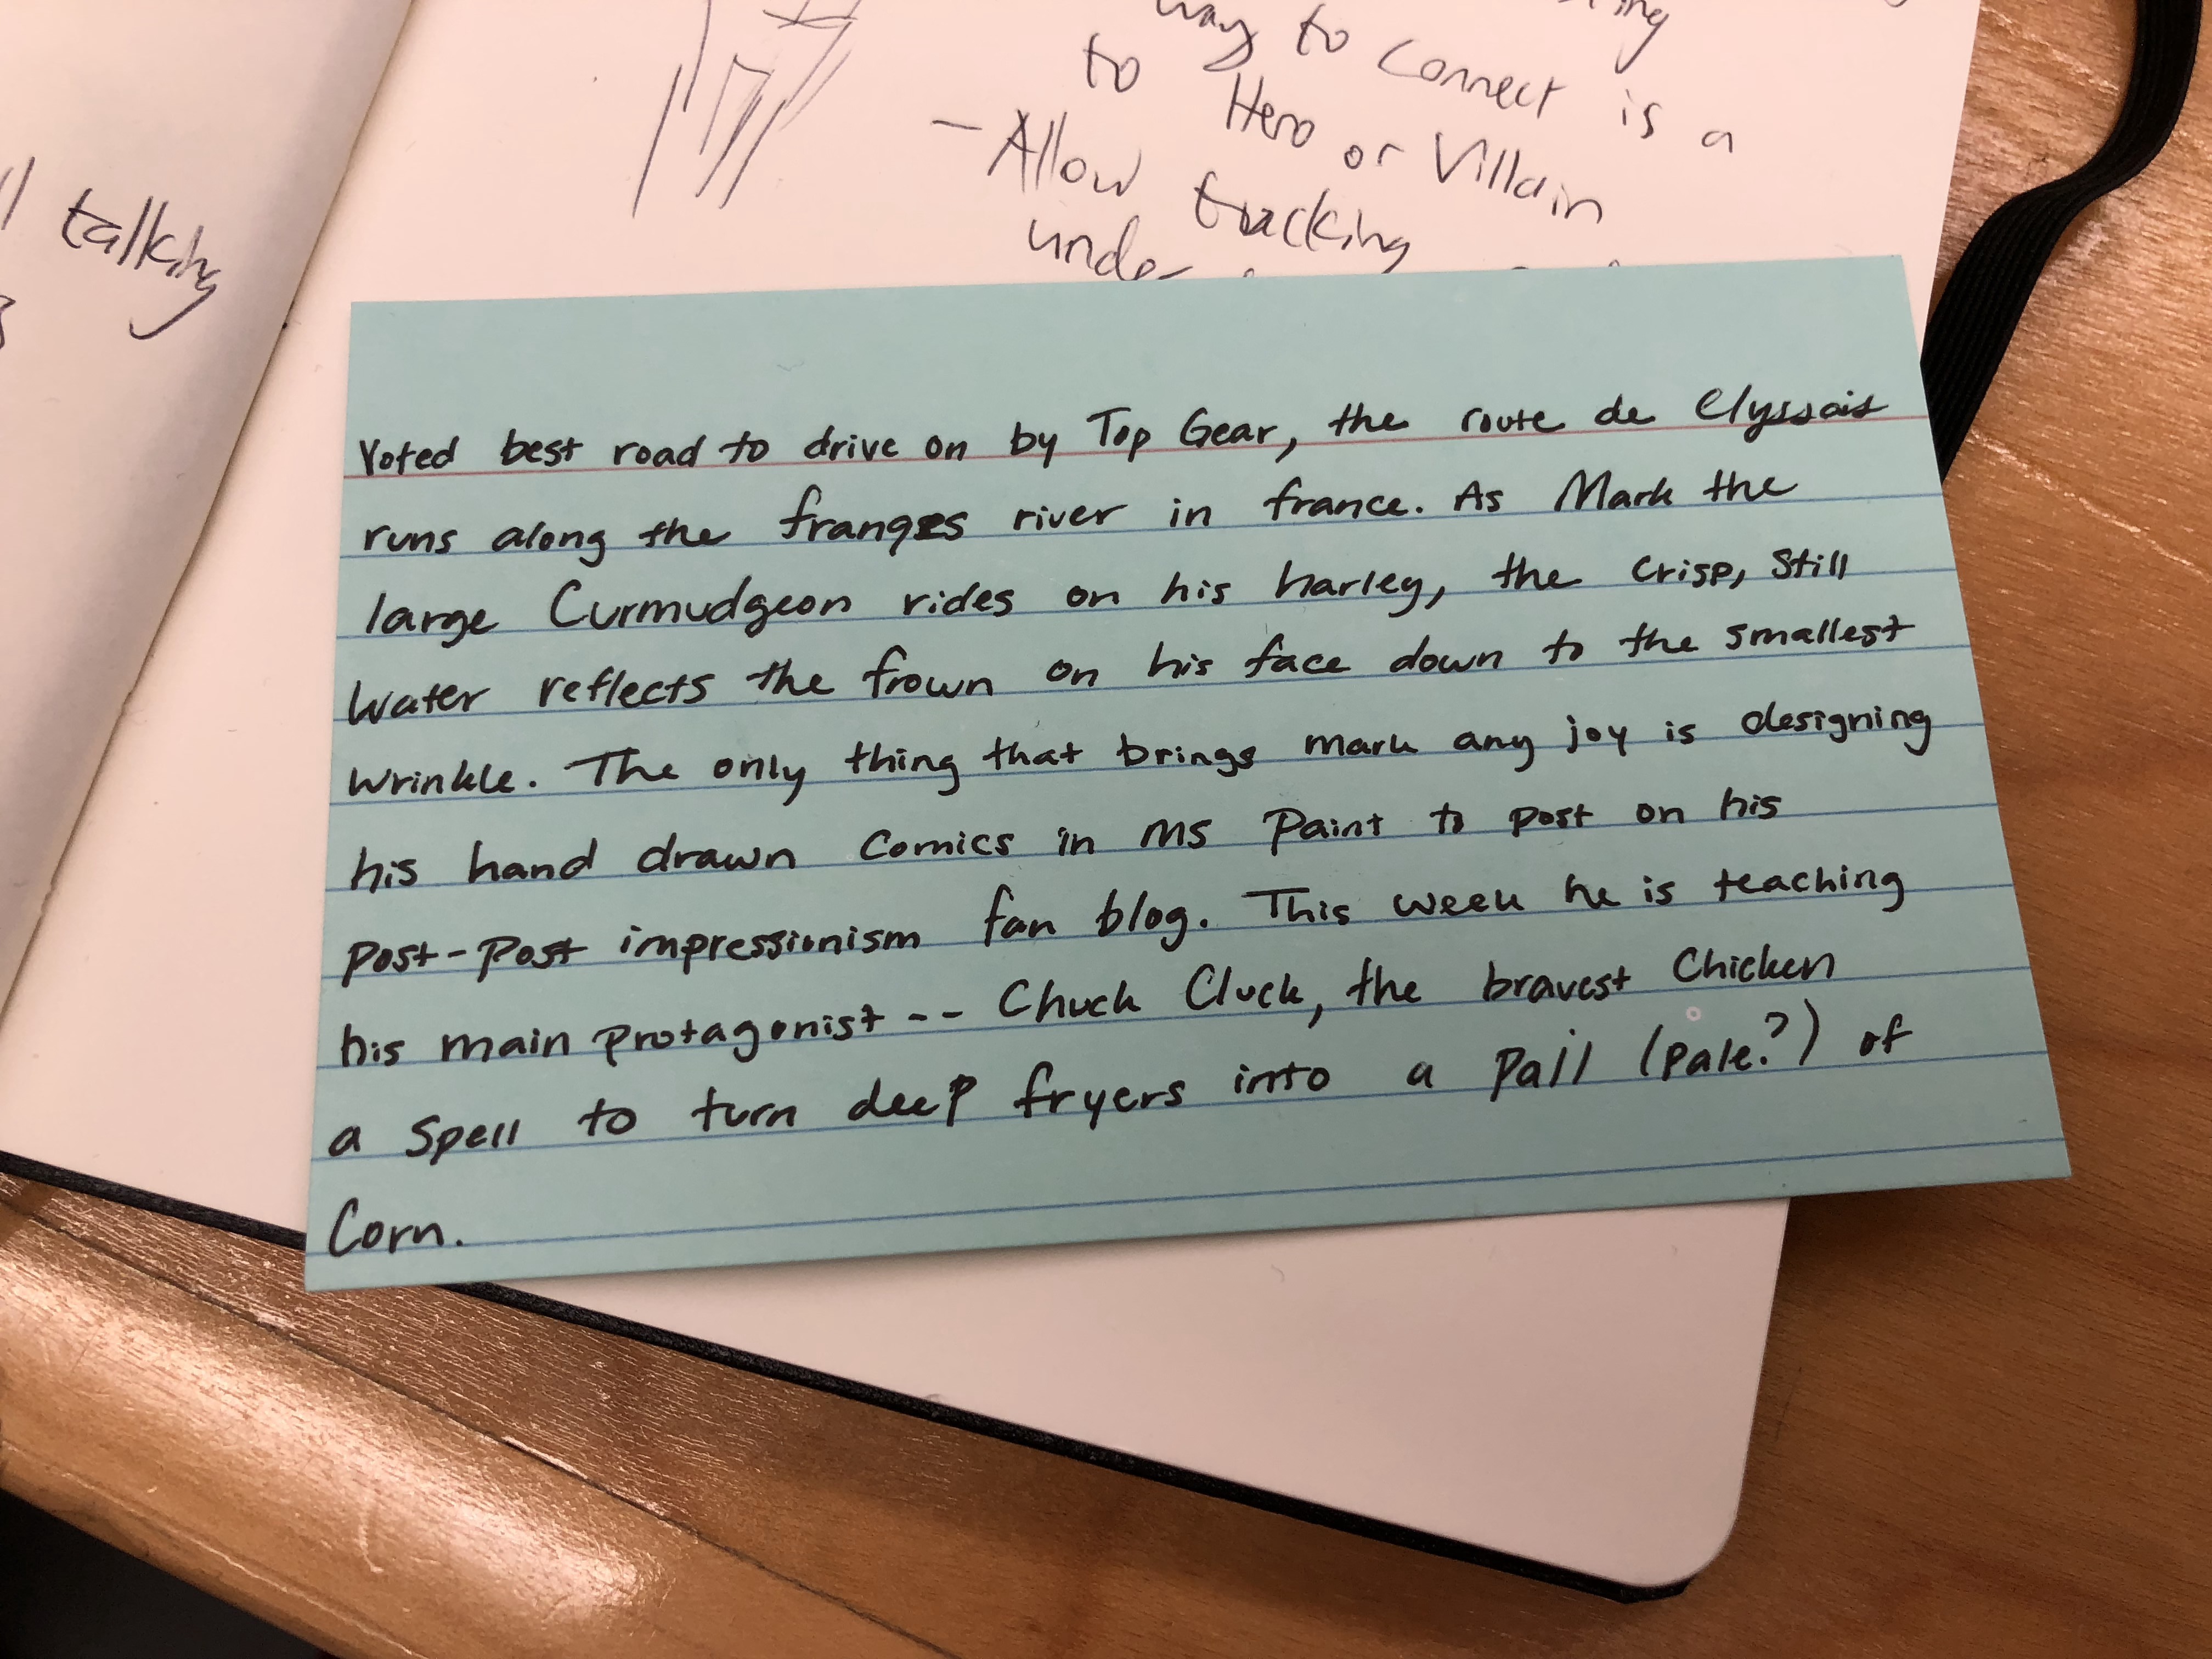 talking
way to connect is a
to Hero or Villain
- Allow tracking
under
Voted best road to drive on by Top Gear, the route de Elyssois
runs along the franges river in france. As Mark the
large Curmudgeon rides on his harley, the crisp, still
water reflects the frown on his face down to the smallest
wrinkle. The only thing that brings mark any joy is designing
his hand drawn comics in ms paint to post on his
post-post impressionism fan blog. This week he is teaching
his main protagonist -- Chuck Cluck, the bravest chicken
a spell to turn deep fryers into a pail (pale?) of
Corn.